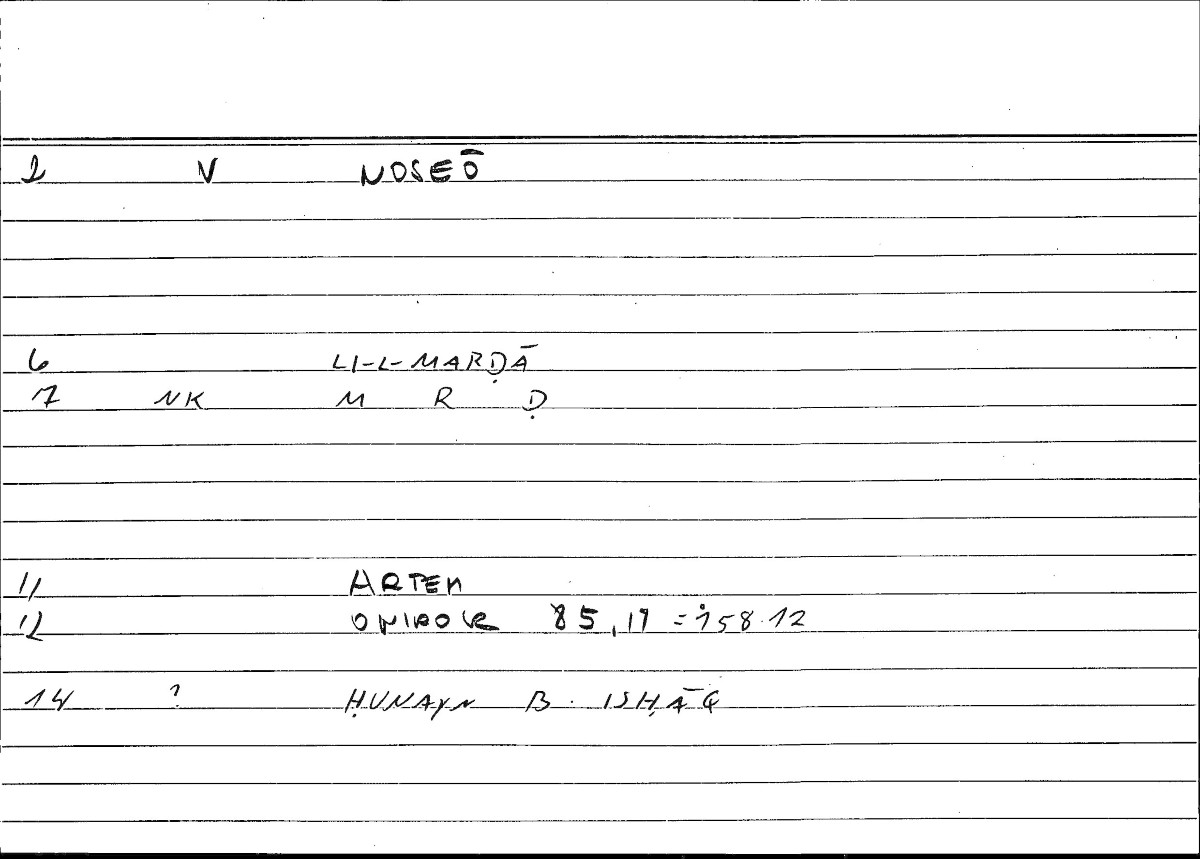 2 V NOSEŌ
6 LI-L-MARḌĀ
7 NK M R Ḍ
11 ARTEM
12 ONIROCR 85,17 = 158.12
14 ? ḤUNAYN B. ISḤĀQ